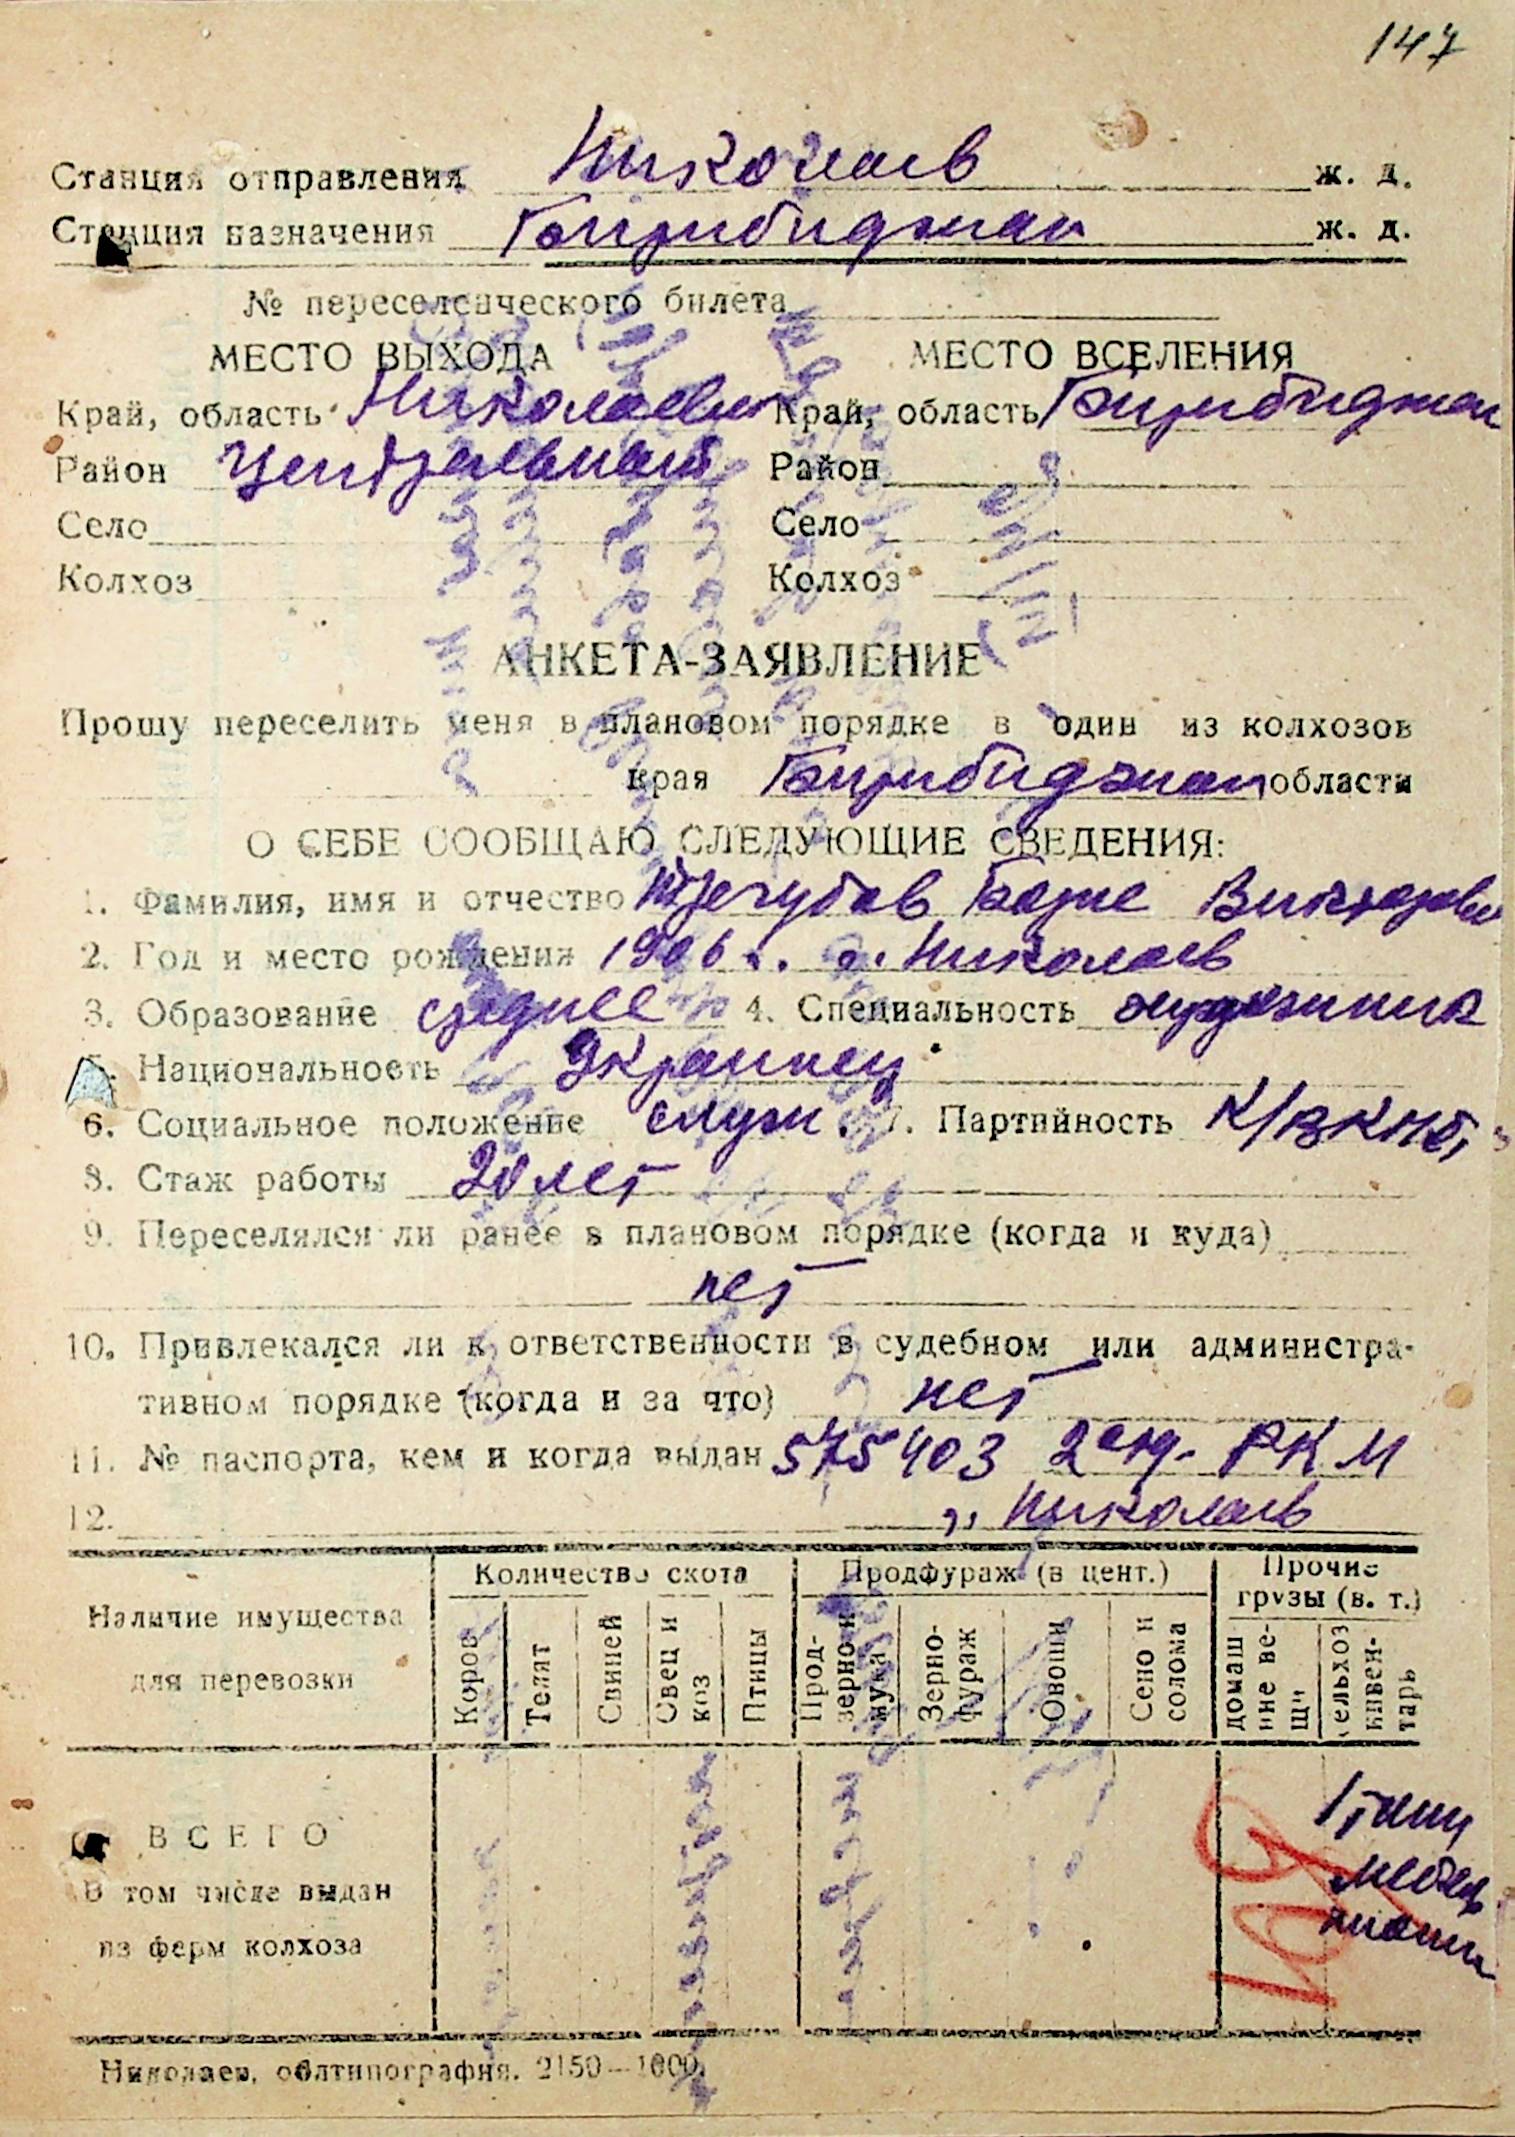 147
Станция отправления Николаев ж. д.
Станция назначения Биробиджан ж. д.
№ переселенческого билета
МЕСТО ВЫХОДА МЕСТО ВСЕЛЕНИЯ
Край, область Николаевск Край, область Биробиджан
Район Центральный Район
Село Село
Колхоз Колхоз
АНКЕТА-ЗАЯВЛЕНИЕ
Прошу переселить меня в плановом порядке в один из колхозов
края Биробиджан области
О СЕБЕ СООБЩАЮ СЛЕДУЮЩИЕ СВЕДЕНИЯ:
1. Фамилия, имя и отчество
2. Год и место рождения 1906 г. г. Николаев
3. Образование среднее 4. Специальность художник
5. Национальность Украинец
6. Социальное положение служ. 7. Партийность К/ВКПб,
8. Стаж работы 20 лет
9. Переселялся ли ранее в плановом порядке (когда и куда)
нет
10. Привлекался ли к ответственности в судебном или администра-
тивном порядке (когда и за что) нет
11. № паспорта, кем и когда выдан 575403 2 РКМ
12. г. Николаев
Наличие имущества
для перевозки
Количество скота
Продфураж (в цент.)
Прочие
грузы (в. т.)
Коров
Телят
Свиней
Овец и
коз
Птицы
Прод-
зерно и
мука
Зерно-
фураж
Овощи
Сено и
солома
домаш
ние ве-
щи
сельхоз
инвен-
тарь
ВСЕГО
В том числе выдан
из ферм колхоза
109
Николаев, облтипография. 2150—1000.